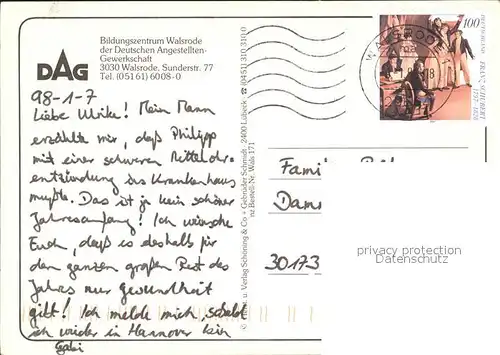 DAG
Bildungszentrum Walsrode
der Deutschen Angestellten-
Gewerkschaft
3030 Walsrode, Sunderstr. 77
Tel. (051 61) 6008-0
98-1-7
Liebe Ulrike! Mein Mann
erzählte mir, daß Philipp
mit einer schweren Mittelohr-
entzündung ins Krankenhaus
mußte. Das ist ja kein schöner
Jahresanfang! Ich wünsche
Euch, daß es deshalb für
den ganzen großen Rest des
Jahres nur Gesundheit
gibt! Ich melde mich, sobald
ich wieder in Hannover bin
Gabi
© Druck u. Verlag Schöning & Co + Gebrüder Schmidt · 2400 Lübeck · ☎ (0451) 31 03 10
Bestell-Nr. Wals 171
100
DEUTSCHLAND
FRANZ SCHUBERT
1797 1828
WALSRODE
18
Fami
Dam
30173
privacy protection
Datenschutz